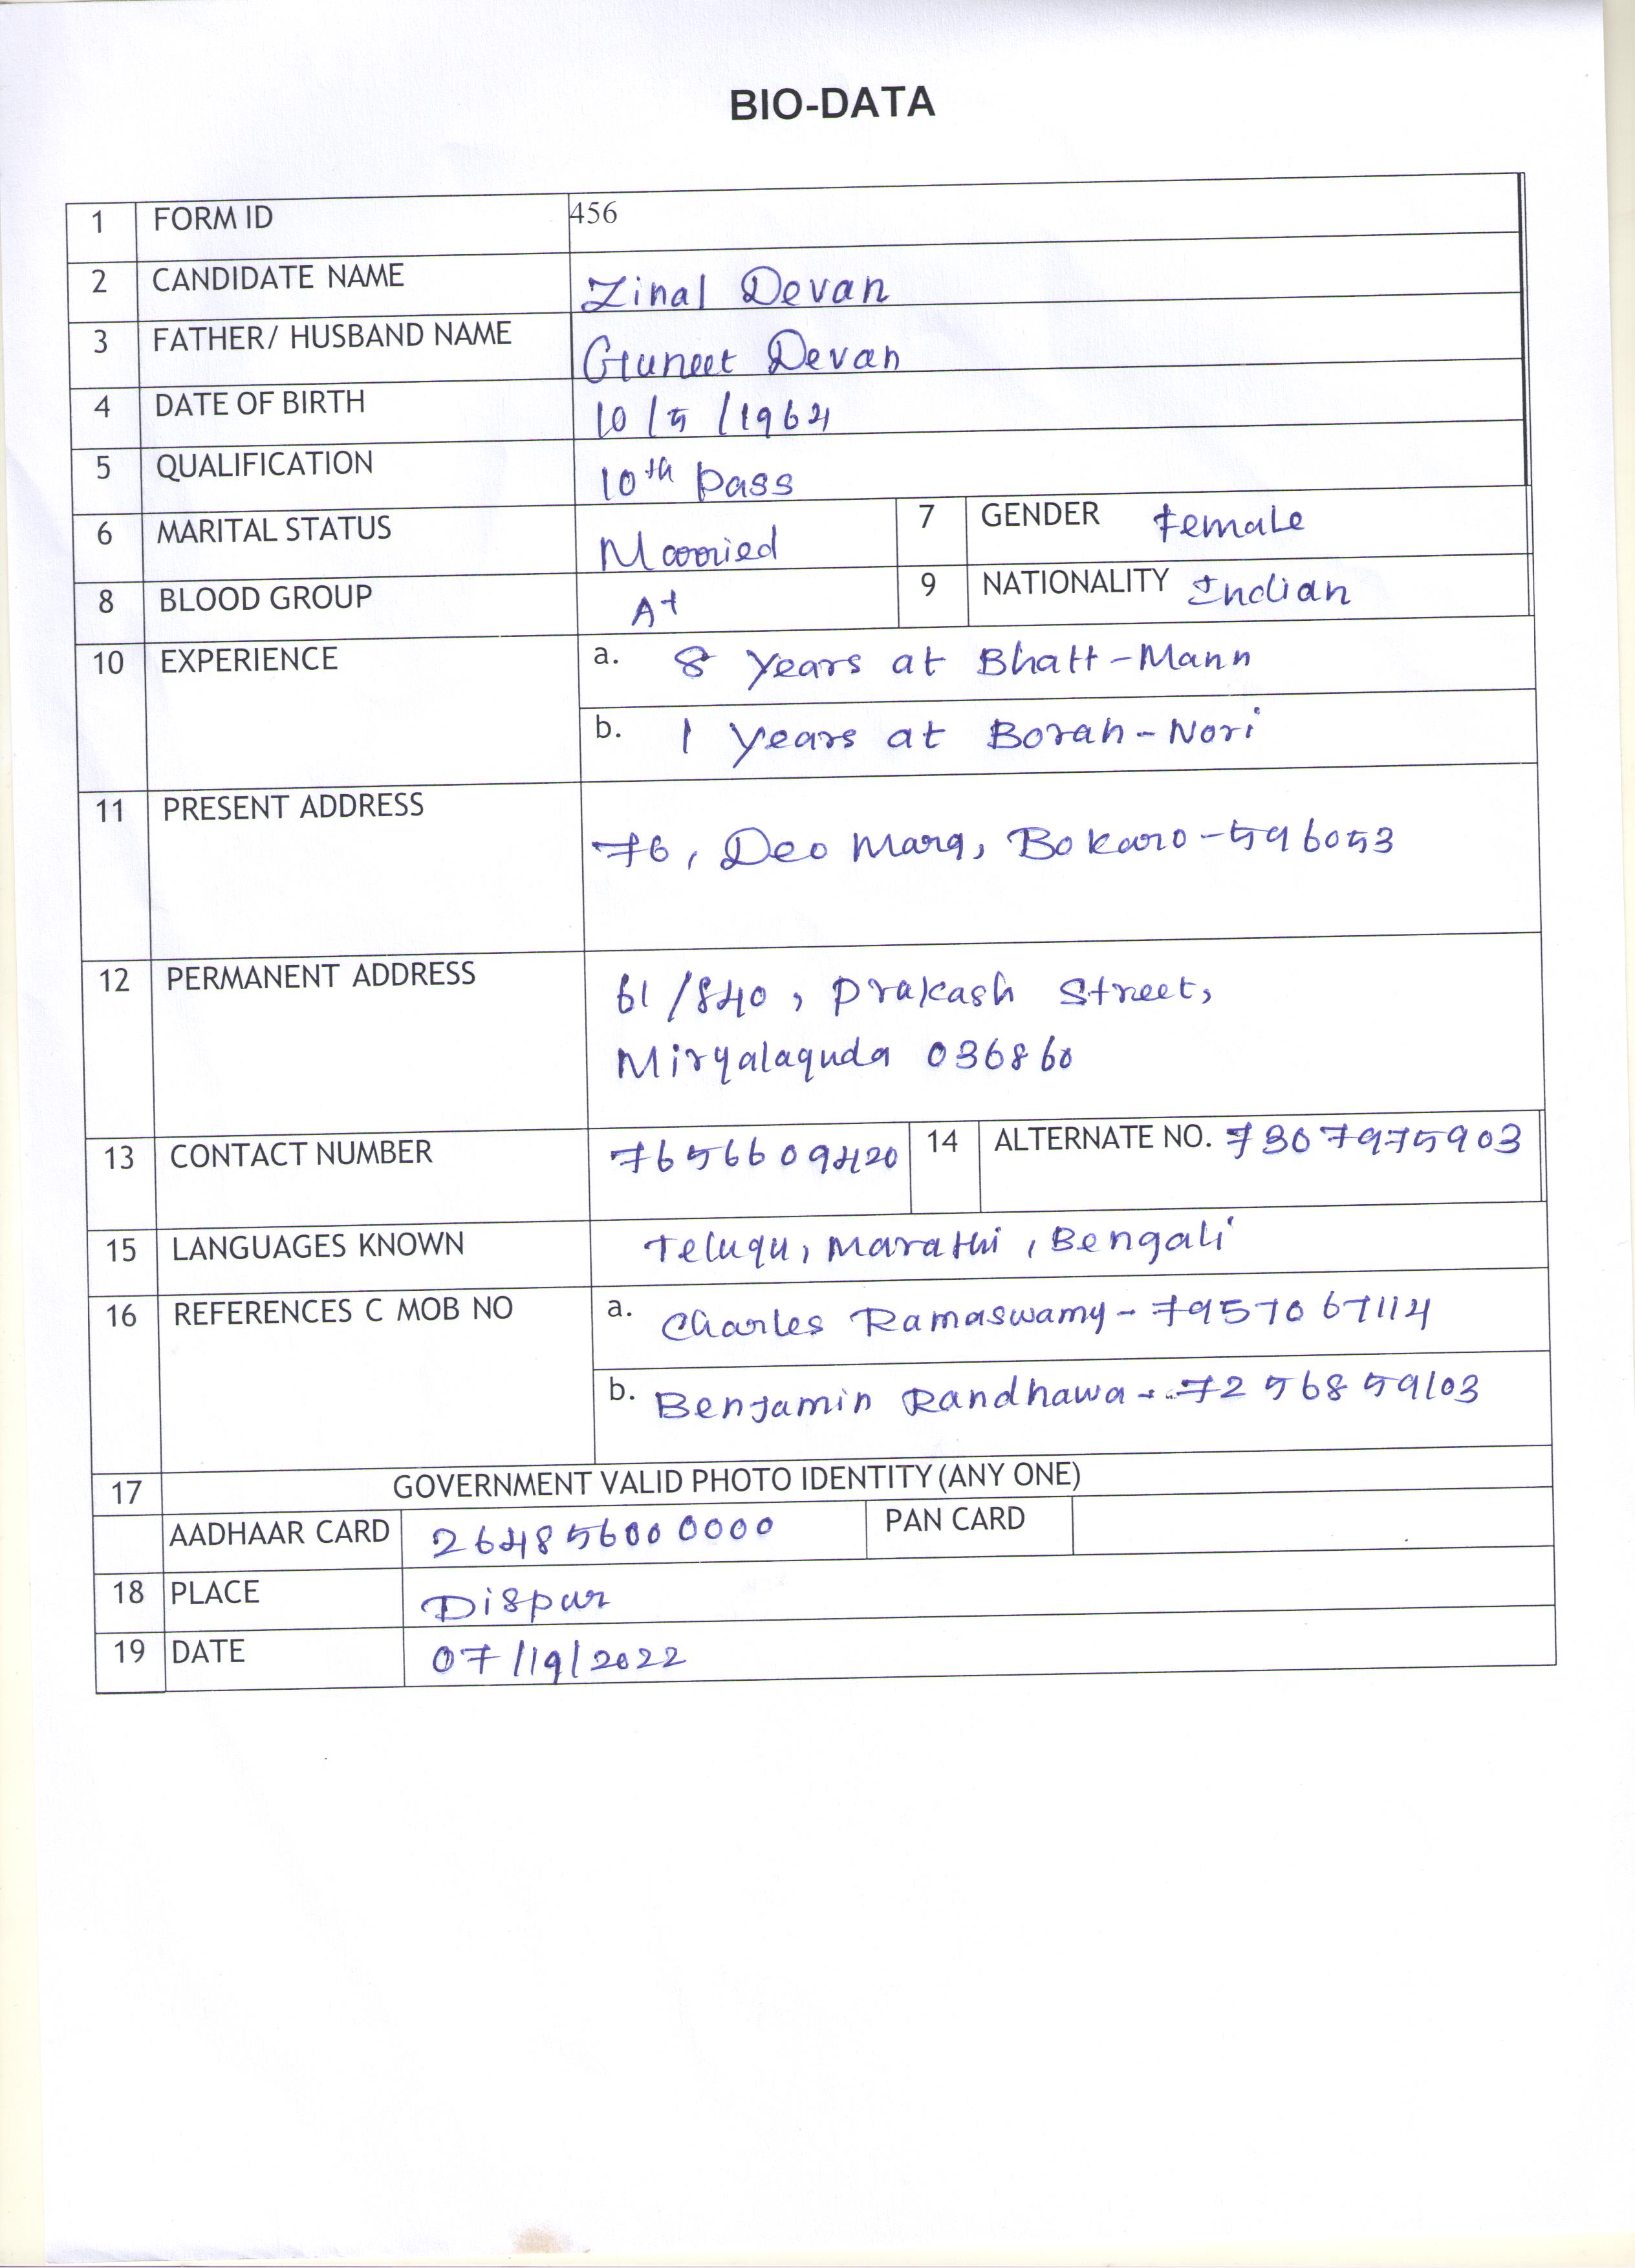 BIO-DATA
1 FORM ID 456
2 CANDIDATE NAME Zinal Devan
3 FATHER/ HUSBAND NAME Guneet Devan
4 DATE OF BIRTH 10/5/1964
5 QUALIFICATION 10th pass
6 MARITAL STATUS Married 7 GENDER Female
8 BLOOD GROUP A+ 9 NATIONALITY Indian
10 EXPERIENCE a. 8 years at Bhatt-Mann
b. 1 years at Borah-Nori
11 PRESENT ADDRESS
76, Deo Marg, Bokaro-596053
12 PERMANENT ADDRESS 61/840, Prakash Street,
Miryalaguda 036860
13 CONTACT NUMBER 7656609420 14 ALTERNATE NO. 7307975903
15 LANGUAGES KNOWN Telugu, Marathi, Bengali
16 REFERENCES C MOB NO a. Charles Ramaswamy - 7957067114
b. Benjamin Randhawa - 7256859103
17 GOVERNMENT VALID PHOTO IDENTITY (ANY ONE)
AADHAAR CARD 264856000000 PAN CARD
18 PLACE Dispur
19 DATE 07/19/2022